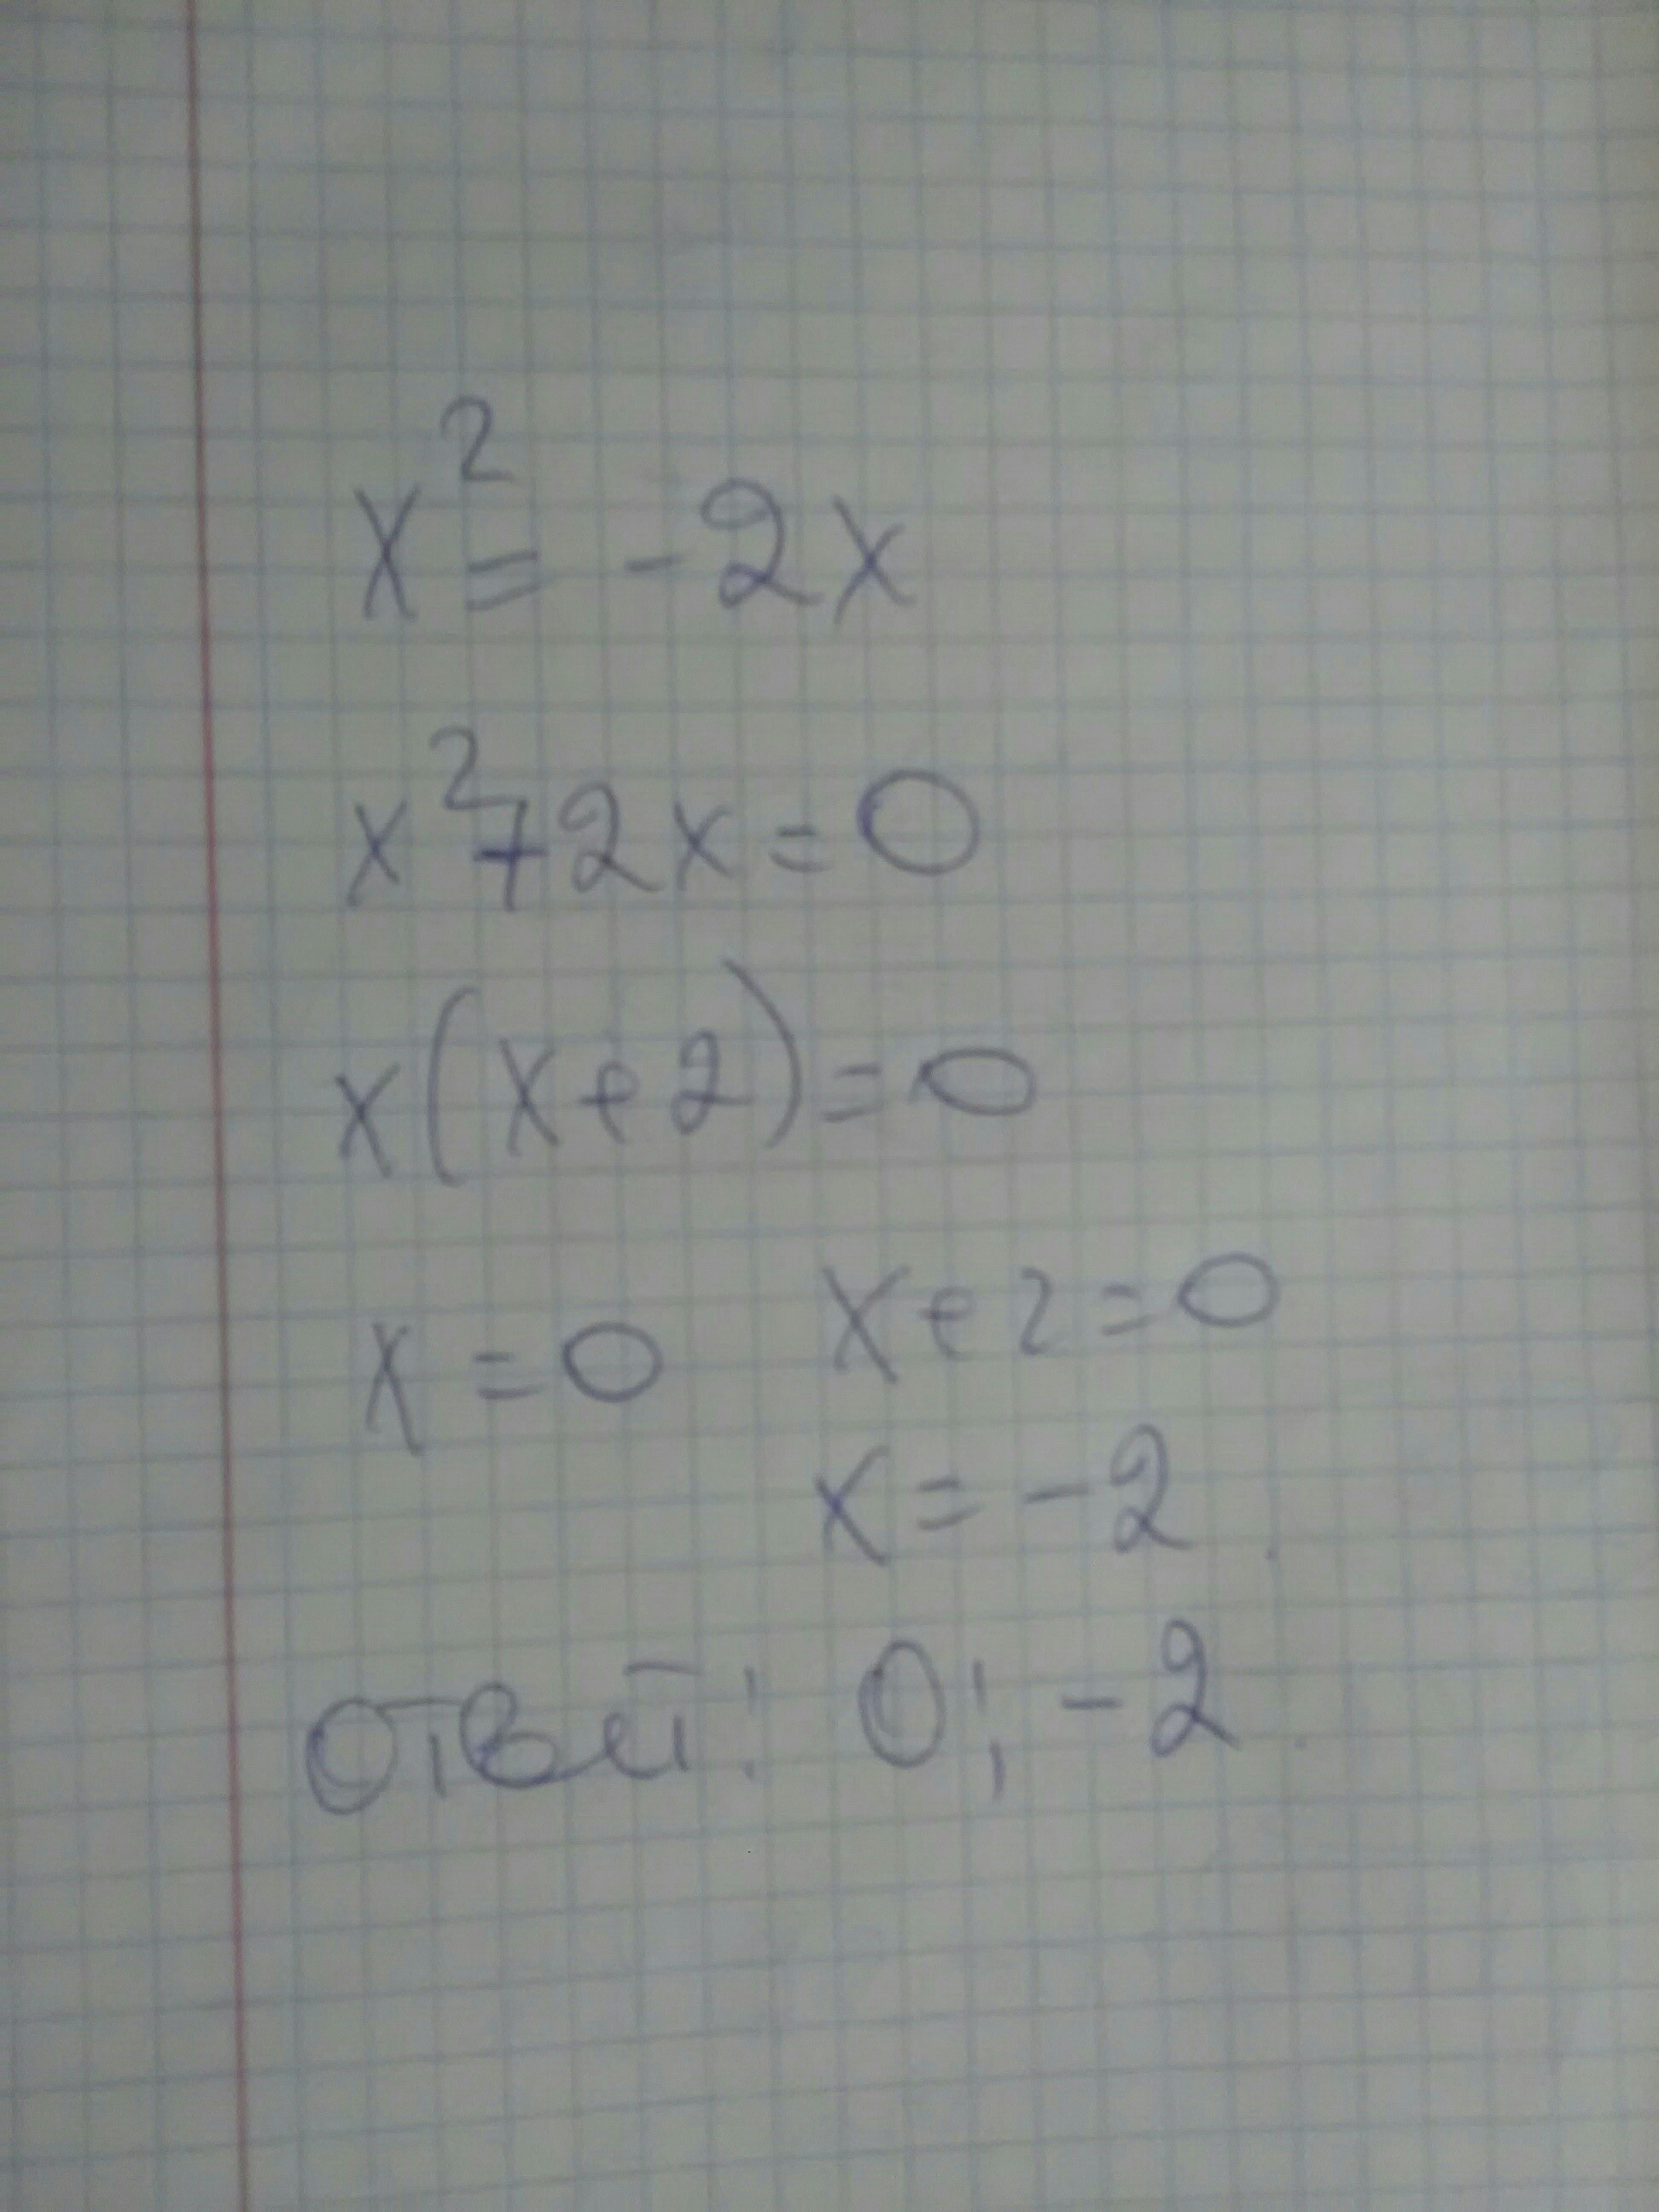 x² = -2x
x² + 2x = 0
x(x+2) = 0
x = 0 x+2=0
x = -2
Ответ: 0; -2